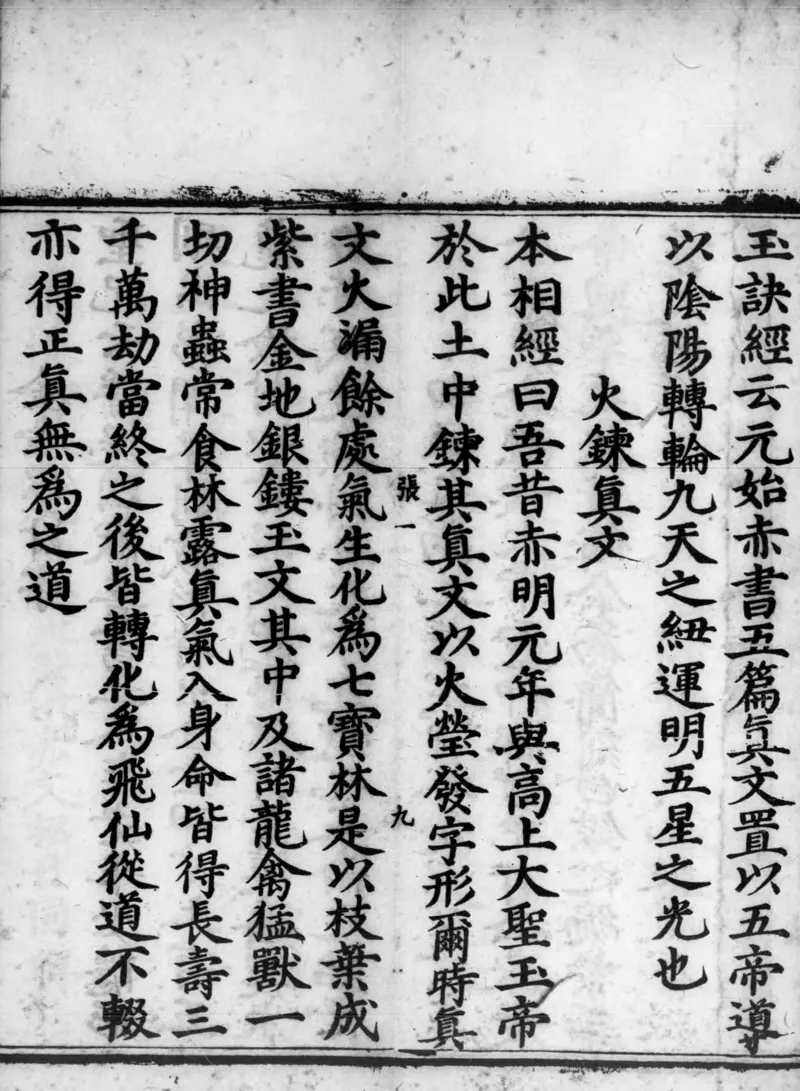 玉訣經云元始赤書五篇眞文置以五帝導
以陰陽轉輪九天之紐運明五星之光也
火鍊眞文
本相經曰吾昔赤明元年與高上大聖玉帝
於此土中鍊其眞文以火瑩發字形爾時眞
張一 九
文火漏餘處氣生化爲七寶林是以枝葉成
紫書金地銀鏤玉文其中及諸龍禽猛獸一
切神蟲常食林露眞氣入身命皆得長壽三
千萬劫當終之後皆轉化爲飛仙從道不輟
亦得正眞無爲之道